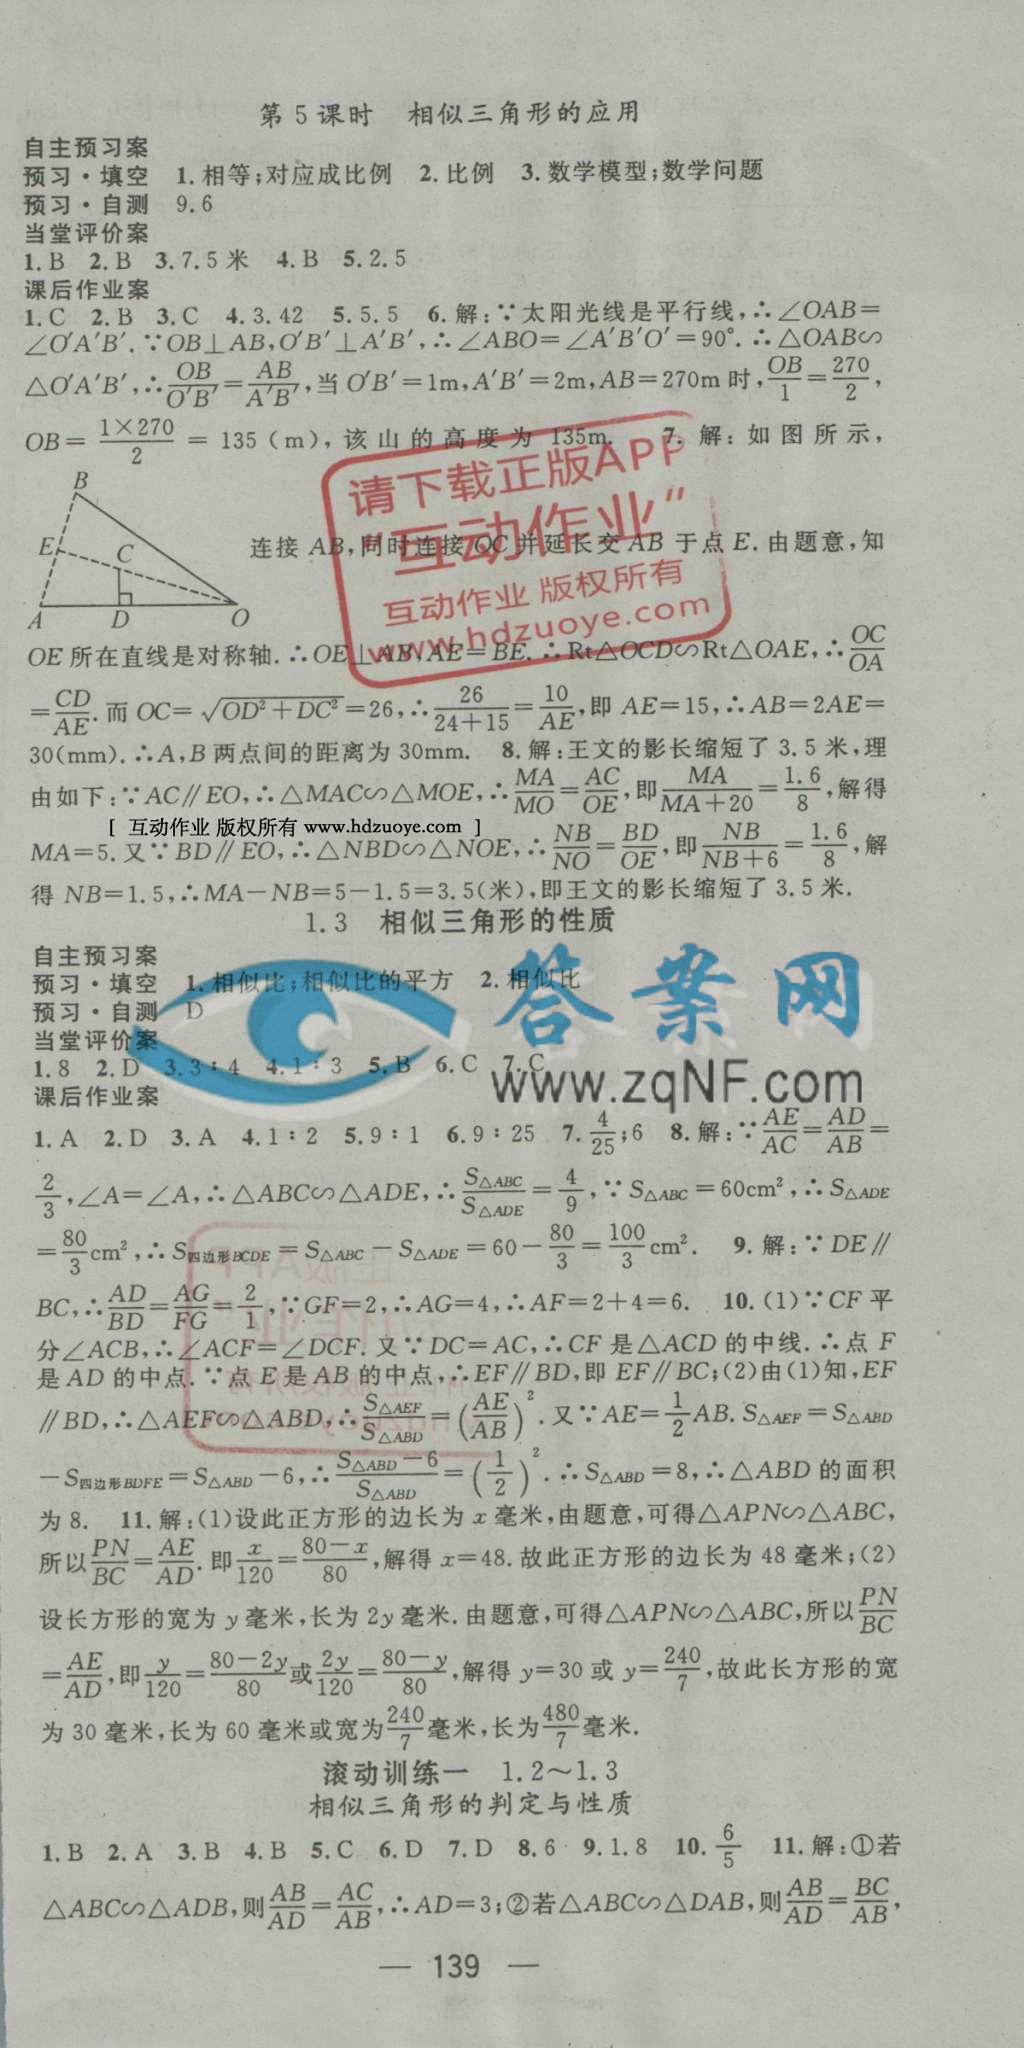 第5课时 相似三角形的应用
自主预习案
预习·填空 1.相等;对应成比例 2.比例 3.数学模型;数学问题
预习·自测 9.6
当堂评价案
1.B 2.B 3.7.5米 4.B 5.2.5
课后作业案
1.C 2.B 3.C 4.3.42 5.5.5 6.解:∵太阳光线是平行线,∴∠OAB=
∠O′A′B′.∵OB⊥AB,O′B′⊥A′B′,∴∠ABO=∠A′B′O′=90°.∴△OAB∽
△O′A′B′,∴OB/O′B′=AB/A′B′,当O′B′=1m,A′B′=2m,AB=270m时,OB/1=270/2,
OB=1×270/2=135(m),该山的高度为135m. 7.解:如图所示,
请下载正版APP
“互动作业”
互动作业 版权所有
www.hdzuoye.com
B
E
C
A
D
O
连接AB,同时连接OC并延长交AB于点E.由题意,知
OE所在直线是对称轴.∴OE⊥AB,AE=BE.∴Rt△OCD∽Rt△OAE,∴OC/OA
=CD/AE.而OC=√(OD²+DC²)=26,∴26/(24+15)=10/AE,即AE=15,∴AB=2AE=
30(mm).∴A,B两点间的距离为30mm. 8.解:王文的影长缩短了3.5米,理
由如下:∵AC∥EO,∴△MAC∽△MOE,∴MA/MO=AC/OE,即MA/(MA+20)=1.6/8,解得
[ 互动作业 版权所有 www.hdzuoye.com ]
MA=5.又∵BD∥EO,∴△NBD∽△NOE,∴NB/NO=BD/OE,即NB/(NB+6)=1.6/8,解
得NB=1.5,∴MA-NB=5-1.5=3.5(米),即王文的影长缩短了3.5米.
1.3 相似三角形的性质
自主预习案
预习·填空 1.相似比;相似比的平方 2.相似比
预习·自测 D
答案网
www.zqNF.com
当堂评价案
1.8 2.D 3.3∶4 4.1∶3 5.B 6.C 7.C
课后作业案
1.A 2.D 3.A 4.1∶2 5.9∶1 6.9∶25 7.4/25;6 8.解:∵AE/AC=AD/AB=
2/3,∠A=∠A,∴△ABC∽△ADE,∴S△ABC/S△ADE=4/9,∵S△ABC=60cm²,∴S△ADE
=80/3cm²,∴S四边形BCDE=S△ABC-S△ADE=60-80/3=100/3cm². 9.解:∵DE∥
BC,∴AD/BD=AG/FG=2/1,∵GF=2,∴AG=4,∴AF=2+4=6. 10.(1)∵CF平
分∠ACB,∴∠ACF=∠DCF.又∵DC=AC,∴CF是△ACD的中线.∴点F
是AD的中点.∵点E是AB的中点,∴EF∥BD,即EF∥BC;(2)由(1)知,EF
∥BD,∴△AEF∽△ABD,∴S△AEF/S△ABD=(AE/AB)².又∵AE=1/2AB.S△AEF=S△ABD
-S四边形BDFE=S△ABD-6,∴(S△ABD-6)/S△ABD=(1/2)².∴S△ABD=8,∴△ABD的面积
为8. 11.解:(1)设此正方形的边长为x毫米,由题意,可得△APN∽△ABC,
所以PN/BC=AE/AD.即x/120=(80-x)/80,解得x=48.故此正方形的边长为48毫米;(2)
设长方形的宽为y毫米,长为2y毫米.由题意,可得△APN∽△ABC,所以PN/BC
=AE/AD,即y/120=(80-2y)/80或2y/120=(80-y)/80,解得y=30或y=240/7,故此长方形的宽
为30毫米,长为60毫米或宽为240/7毫米,长为480/7毫米.
滚动训练一 1.2～1.3
相似三角形的判定与性质
1.B 2.A 3.B 4.B 5.C 6.D 7.D 8.6 9.1.8 10.6/5 11.解:①若
△ABC∽△ADB,则AB/AD=AC/AB,∴AD=3;②若△ABC∽△DAB,则AB/AD=BC/AB,
— 139 —